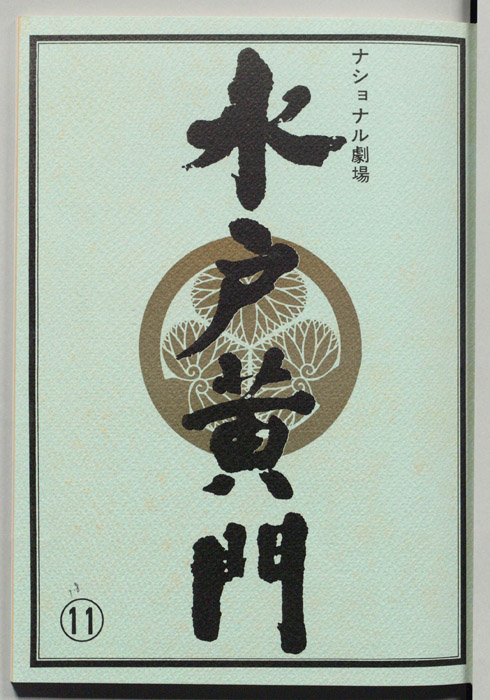 ナショナル劇場
水戸黄門
11